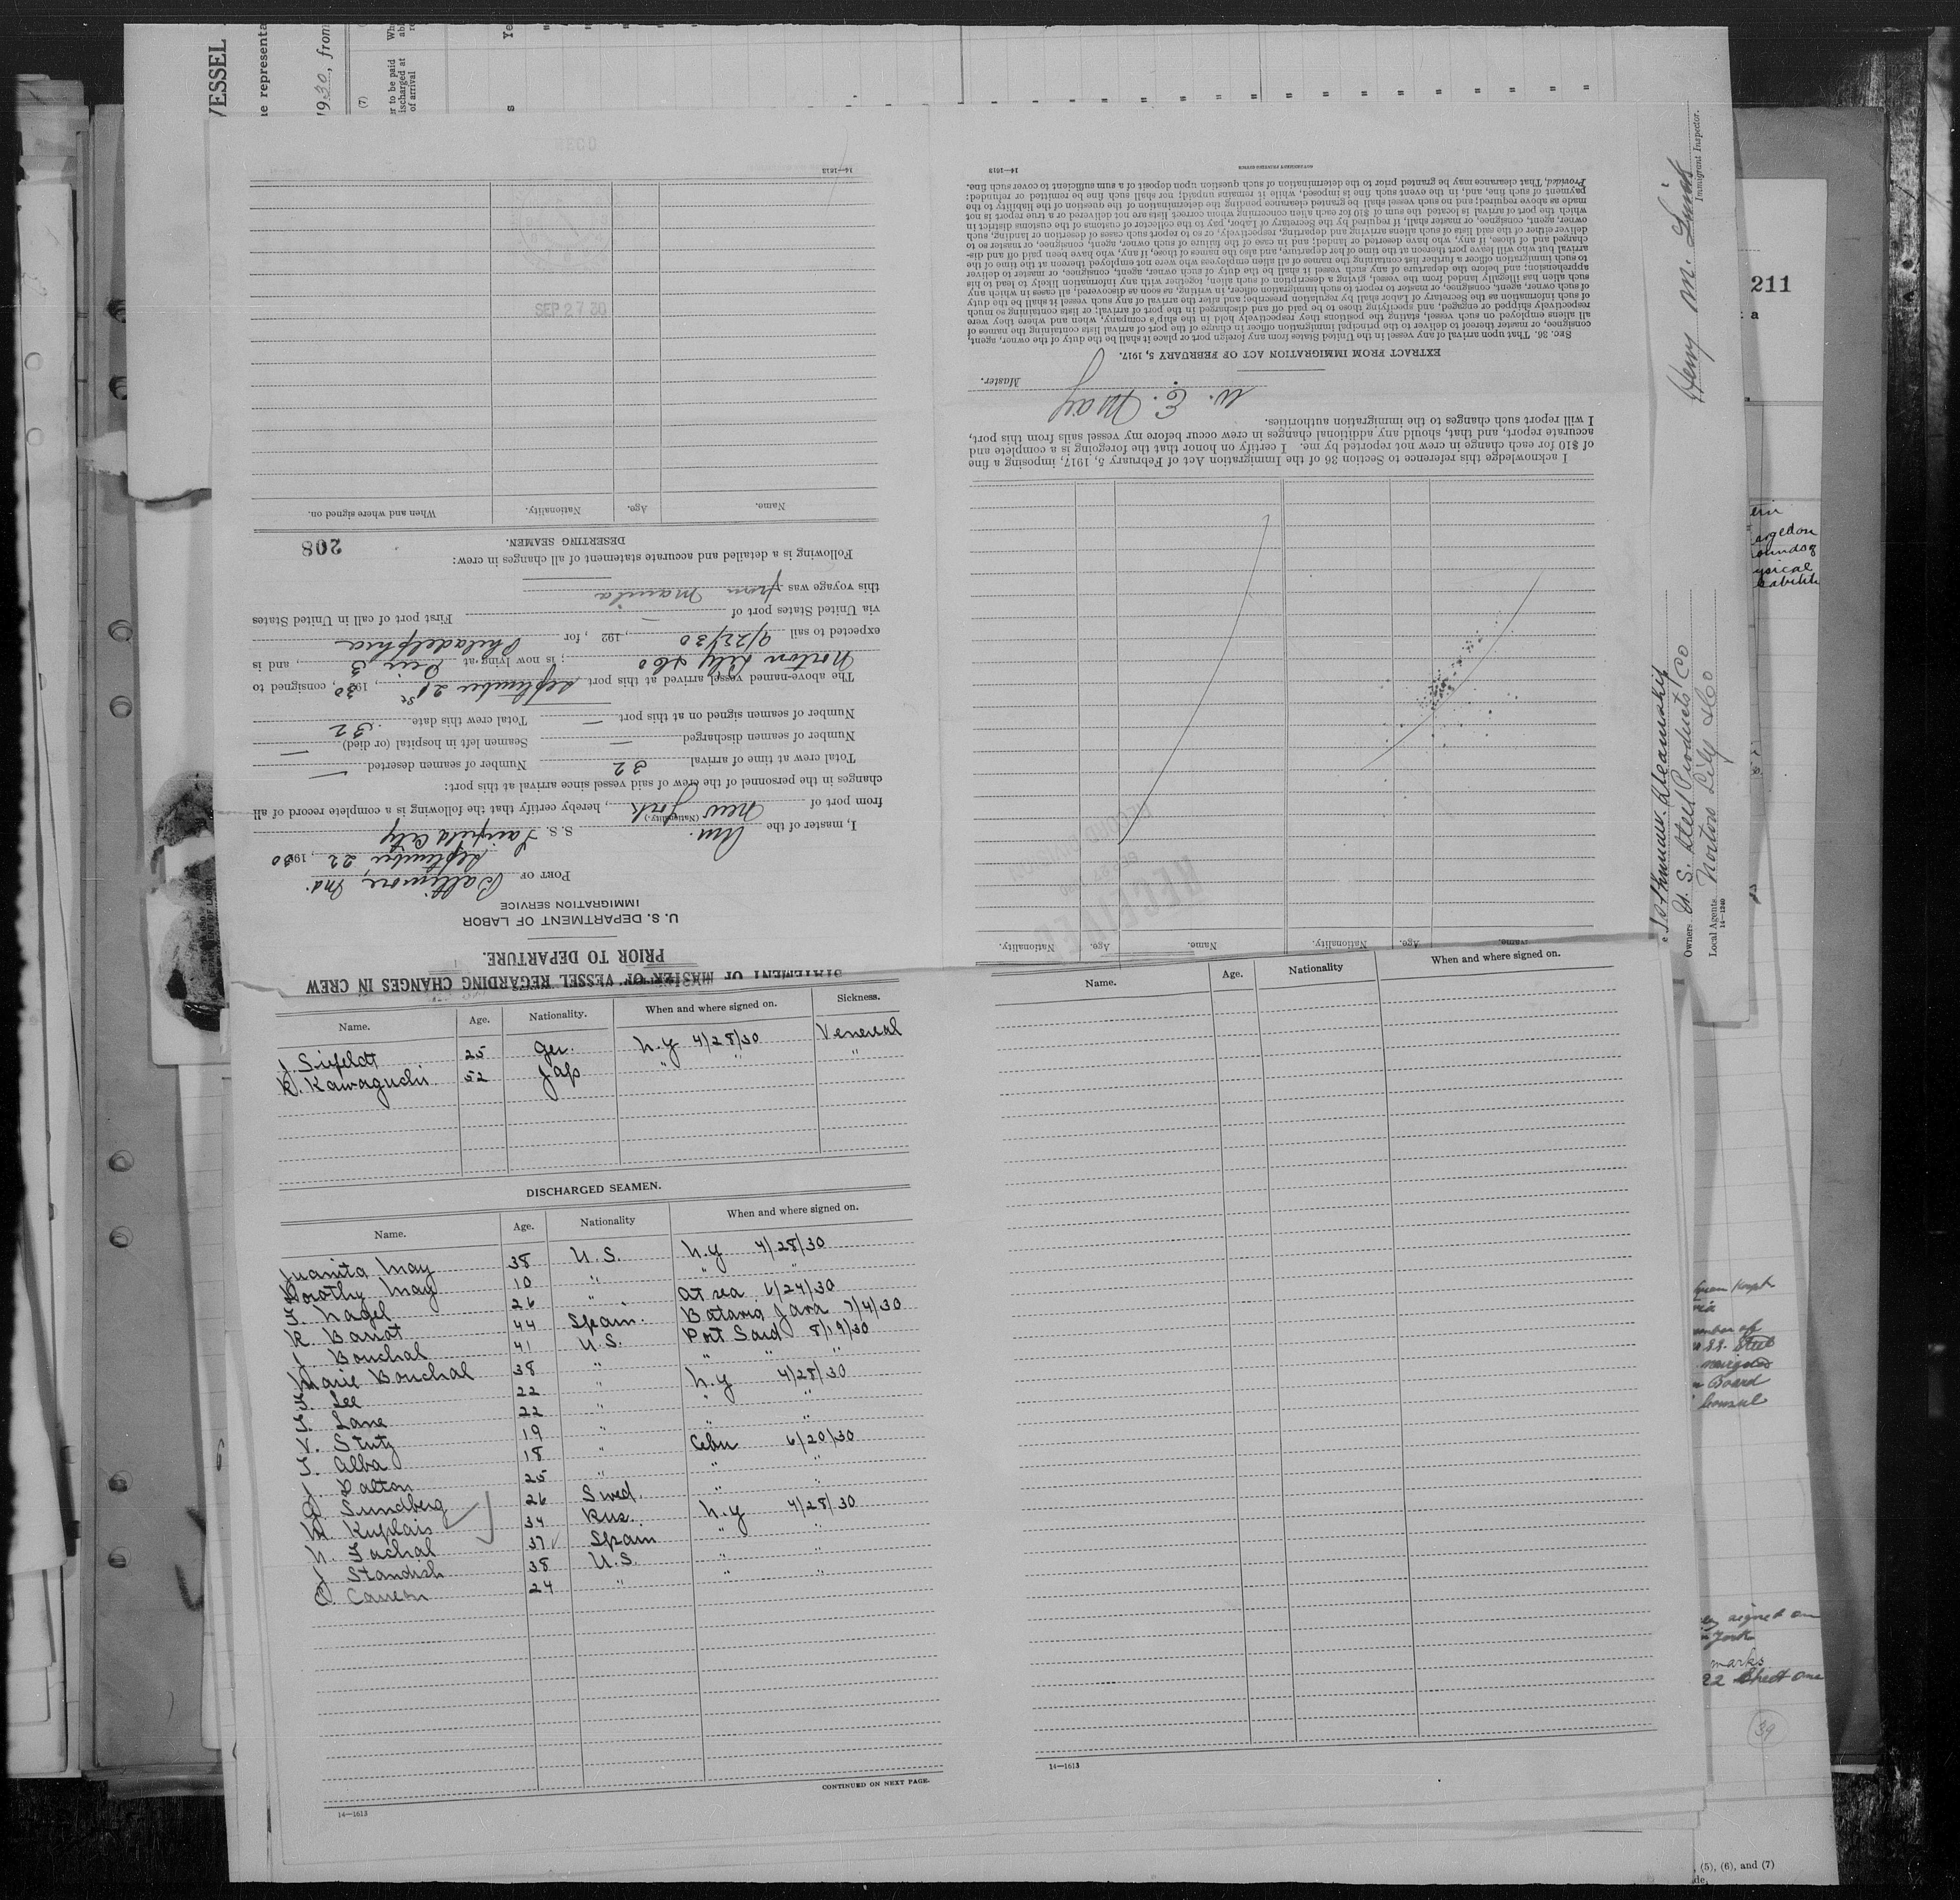 STATEMENT OF MASTER OF VESSEL REGARDING CHANGES IN CREW
PRIOR TO DEPARTURE.
U. S. DEPARTMENT OF LABOR
IMMIGRATION SERVICE
PORT OF Baltimore, Md.
September 22, 1930
I, master of the Am. S. S. Fairfield City
(Nationality.)
from port of New York, hereby certify that the following is a complete record of all
changes in the personnel of the crew of said vessel since arrival at this port:
Total crew at time of arrival 32 Number of seamen deserted —
Number of seamen discharged — Seamen left in hospital (or died) —
Number of seamen signed on at this port — Total crew this date 32
The above-named vessel arrived at this port September 21st, 1930, consigned to
Norton Lily & Co; is now lying at Pier 3, and is
expected to sail 9/22/30, 192 , for Philadelphia
via United States port of — First port of call in United States
this voyage was from Manila
Following is a detailed and accurate statement of all changes in crew:
DESERTING SEAMEN.
208
Name. Age. Nationality. When and where signed on.
SEP 27 30
14—1613
Name. Age. Nationality. Name. Age. Nationality.
RECEIVED
I acknowledge this reference to Section 36 of the Immigration Act of February 5, 1917, imposing a fine
of $10 for each change in crew not reported by me. I certify on honor that the foregoing is a complete and
accurate report, and that, should any additional changes in crew occur before my vessel sails from this port,
I will report such changes to the immigration authorities.
W. E. May
Master.
EXTRACT FROM IMMIGRATION ACT OF FEBRUARY 5, 1917.
SEC. 36. That upon arrival of any vessel in the United States from any foreign port or place it shall be the duty of the owner, agent,
consignee, or master thereof to deliver to the principal immigration officer in charge of the port of arrival lists containing the names of
all aliens employed on such vessel, stating the positions they respectively hold in the ship's company, when and where they were
respectively shipped or engaged, and specifying those to be paid off and discharged in the port of arrival; or lists containing so much
of such information as the Secretary of Labor shall by regulation prescribe; and after the arrival of any such vessel it shall be the duty
of such owner, agent, consignee, or master to report to such immigration officer, in writing, as soon as discovered, all cases in which any
such alien has illegally landed from the vessel, giving a description of such alien, together with any information likely to lead to his
apprehension; and before the departure of any such vessel it shall be the duty of such owner, agent, consignee, or master to deliver
to such immigration officer a further list containing the names of all alien employees who were not employed thereon at the time of the
arrival but who will leave port thereon at the time of her departure, and also the names of those, if any, who have been paid off and dis-
charged and of those, if any, who have deserted or landed; and in case of the failure of such owner, agent, consignee, or master so to
deliver either of the said lists of such aliens arriving and departing, respectively, or so to report such cases of desertion or landing, such
owner, agent, consignee, or master shall, if required by the Secretary of Labor, pay to the collector of customs of the customs district in
which the port of arrival is located the sum of $10 for each alien concerning whom correct lists are not delivered or a true report is not
made as above required; and no such vessel shall be granted clearance pending the determination of the question of the liability to the
payment of such fine, and, in the event such fine is imposed, while it remains unpaid; nor shall such fine be remitted or refunded:
Provided, That clearance may be granted prior to the determination of such question upon deposit of a sum sufficient to cover such fine.
14—1613 GOVERNMENT PRINTING OFFICE
Name. Age. Nationality. When and where signed on. Sickness.
J. Siefeldt 25 Ger. N.Y 4/28/30 Venereal
K. Kawaguchi 52 Jap " " "
DISCHARGED SEAMEN.
Name. Age. Nationality When and where signed on.
Juanita May 38 U.S. N.Y 4/28/30
Dorothy May 10 " " "
F. Nagel 26 " At sea 6/24/30
R. Barrat 44 Spain. Batavia Java 7/4/30
J. Bouchal 41 U.S. Port Said 8/19/30
Marie Bouchal 38 " " " "
F. Lee 22 " N.Y 4/28/30
J. Lane 22 " " "
V. Stutz 19 " " "
F. Alba 18 " Cebu 6/20/30
J. Dalton 25 " " "
O. Sundberg 26 Swed. " "
M. Kuplais 34 Rus. N.Y 4/28/30
N. Fachal 37 Spain " "
J. Standish 38 U.S. " "
C. Carreon 24 " " "
CONTINUED ON NEXT PAGE.
14—1613
Name. Age. Nationality When and where signed on.
14—1613
VESSEL
1930, from
(7)
of arrival
Henry M. Smith
Immigrant Inspector.
Isthmian Steamship
Owners U. S. Steel Products Co
Local Agents Norton Lily & Co
14—1240
211
Board
Consul
signed on
York
marks
22 Sheet one
39
, (5), (6), and (7)